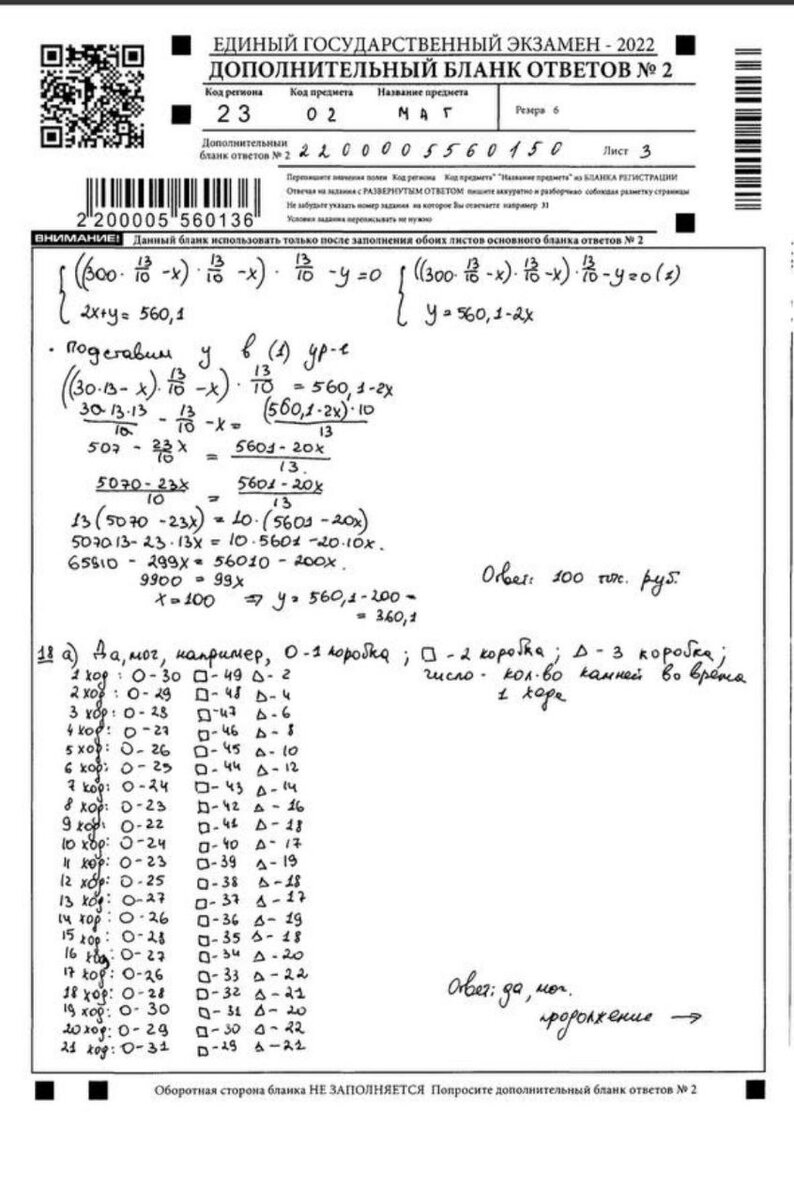 ЕДИНЫЙ ГОСУДАРСТВЕННЫЙ ЭКЗАМЕН - 2022
ДОПОЛНИТЕЛЬНЫЙ БЛАНК ОТВЕТОВ № 2
Код региона Код предмета Название предмета
23 02 МАТ Резерв 6
Дополнительный бланк ответов № 2 2200005560150 Лист 3
Перепишите значения полей Код региона Код предмета" "Название предмета" из БЛАНКА РЕГИСТРАЦИИ
Отвечая на задания с РАЗВЕРНУТЫМ ОТВЕТОМ пишите аккуратно и разборчиво соблюдая разметку страницы
Не забудьте указать номер задания на которое Вы отвечаете например 31
Условия задания переписывать не нужно
2200005 560136
ВНИМАНИЕ! Данный бланк использовать только после заполнения обоих листов основного бланка ответов № 2
{ ((300 · 13/10 - x) · 13/10 - x) · 13/10 - y = 0 { ((300 · 13/10 - x) · 13/10 - x) · 13/10 - y = 0 (1)
2x+y = 560,1 y = 560,1-2x
· Подставим y в (1) ур-е
((30·13 - x) · 13/10 - x) · 13/10 = 560,1-2x
30·13·13/10 - 13/10 - x = (560,1-2x)·10/13
507 - 23/10 x = 5601-20x/13.
5070-23x/10 = 5601-20x/13
13(5070-23x) = 10·(5601-20x)
5070·13 - 23·13x = 10·5601 - 20·10x.
65910 - 299x = 56010 - 200x.
9900 = 99x
x = 100 ⇒ y = 560,1-200 =
= 360,1
Ответ: 100 тыс. руб.
18 а) Да, мог, например, О -1 коробка ; □ - 2 коробка ; Δ - 3 коробка ;
число - кол-во камней во время
1 хода
1 ход : О - 30 □ - 49 Δ - 2
2 ход : О - 29 □ - 48 Δ - 4
3 ход: О - 28 □ - 47 Δ - 6
4 ход: О - 27 □ - 46 Δ - 8
5 ход: О - 26 □ - 45 Δ - 10
6 ход: О - 25 □ - 44 Δ - 12
7 ход: О - 24 □ - 43 Δ - 14
8 ход: О - 23 □ - 42 Δ - 16
9 ход: О - 22 □ - 41 Δ - 18
10 ход: О - 24 □ - 40 Δ - 17
11 ход: О - 23 □ - 39 Δ - 19
12 ход: О - 25 □ - 38 Δ - 18
13 ход: О - 27 □ - 37 Δ - 17
14 ход: О - 26 □ - 36 Δ - 19
15 ход: О - 28 □ - 35 Δ - 18
16 ход: О - 27 □ - 34 Δ - 20
17 ход: О - 26 □ - 33 Δ - 22
18 ход: О - 28 □ - 32 Δ - 21
19 ход: О - 30 □ - 31 Δ - 20
20 ход: О - 29 □ - 30 Δ - 22
21 ход: О - 31 □ - 29 Δ - 21
Ответ: да, мог.
продолжение →
Оборотная сторона бланка НЕ ЗАПОЛНЯЕТСЯ Попросите дополнительный бланк ответов № 2